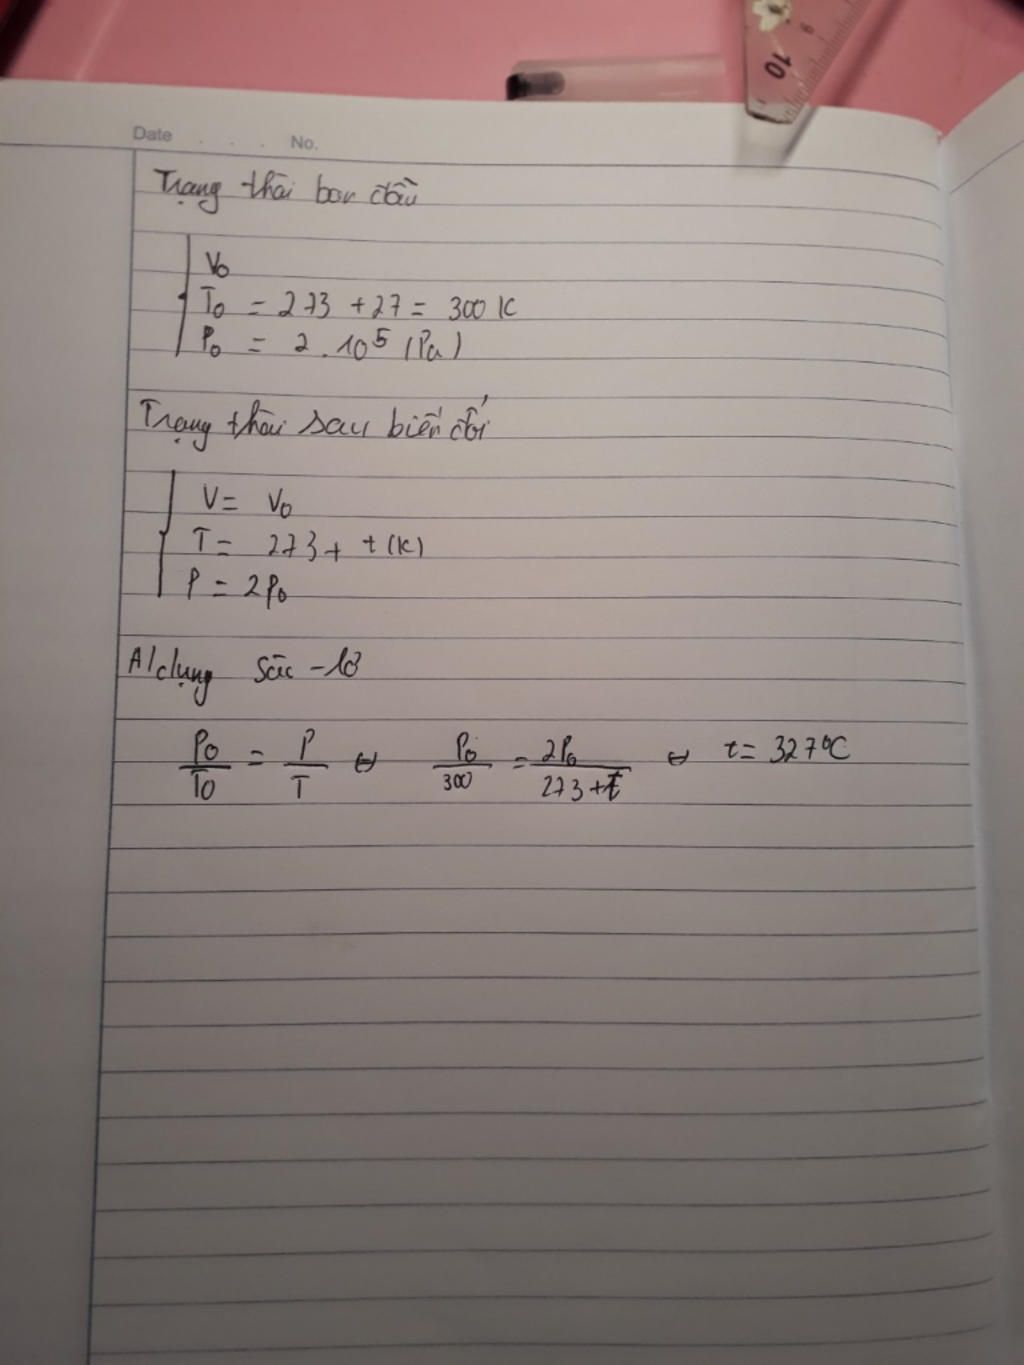 10
9
Date . . . No.
Trạng thái ban đầu
V₀
T₀ = 273 + 27 = 300 K
P₀ = 2 . 10⁵ (Pa)
Trạng thái sau biến đổi
V = V₀
T = 273 + t (K)
P = 2P₀
A/dụng Sác - lơ
P₀/T₀ = P/T ⇔ P₀/300 = 2P₀/273+t ⇔ t = 327°C